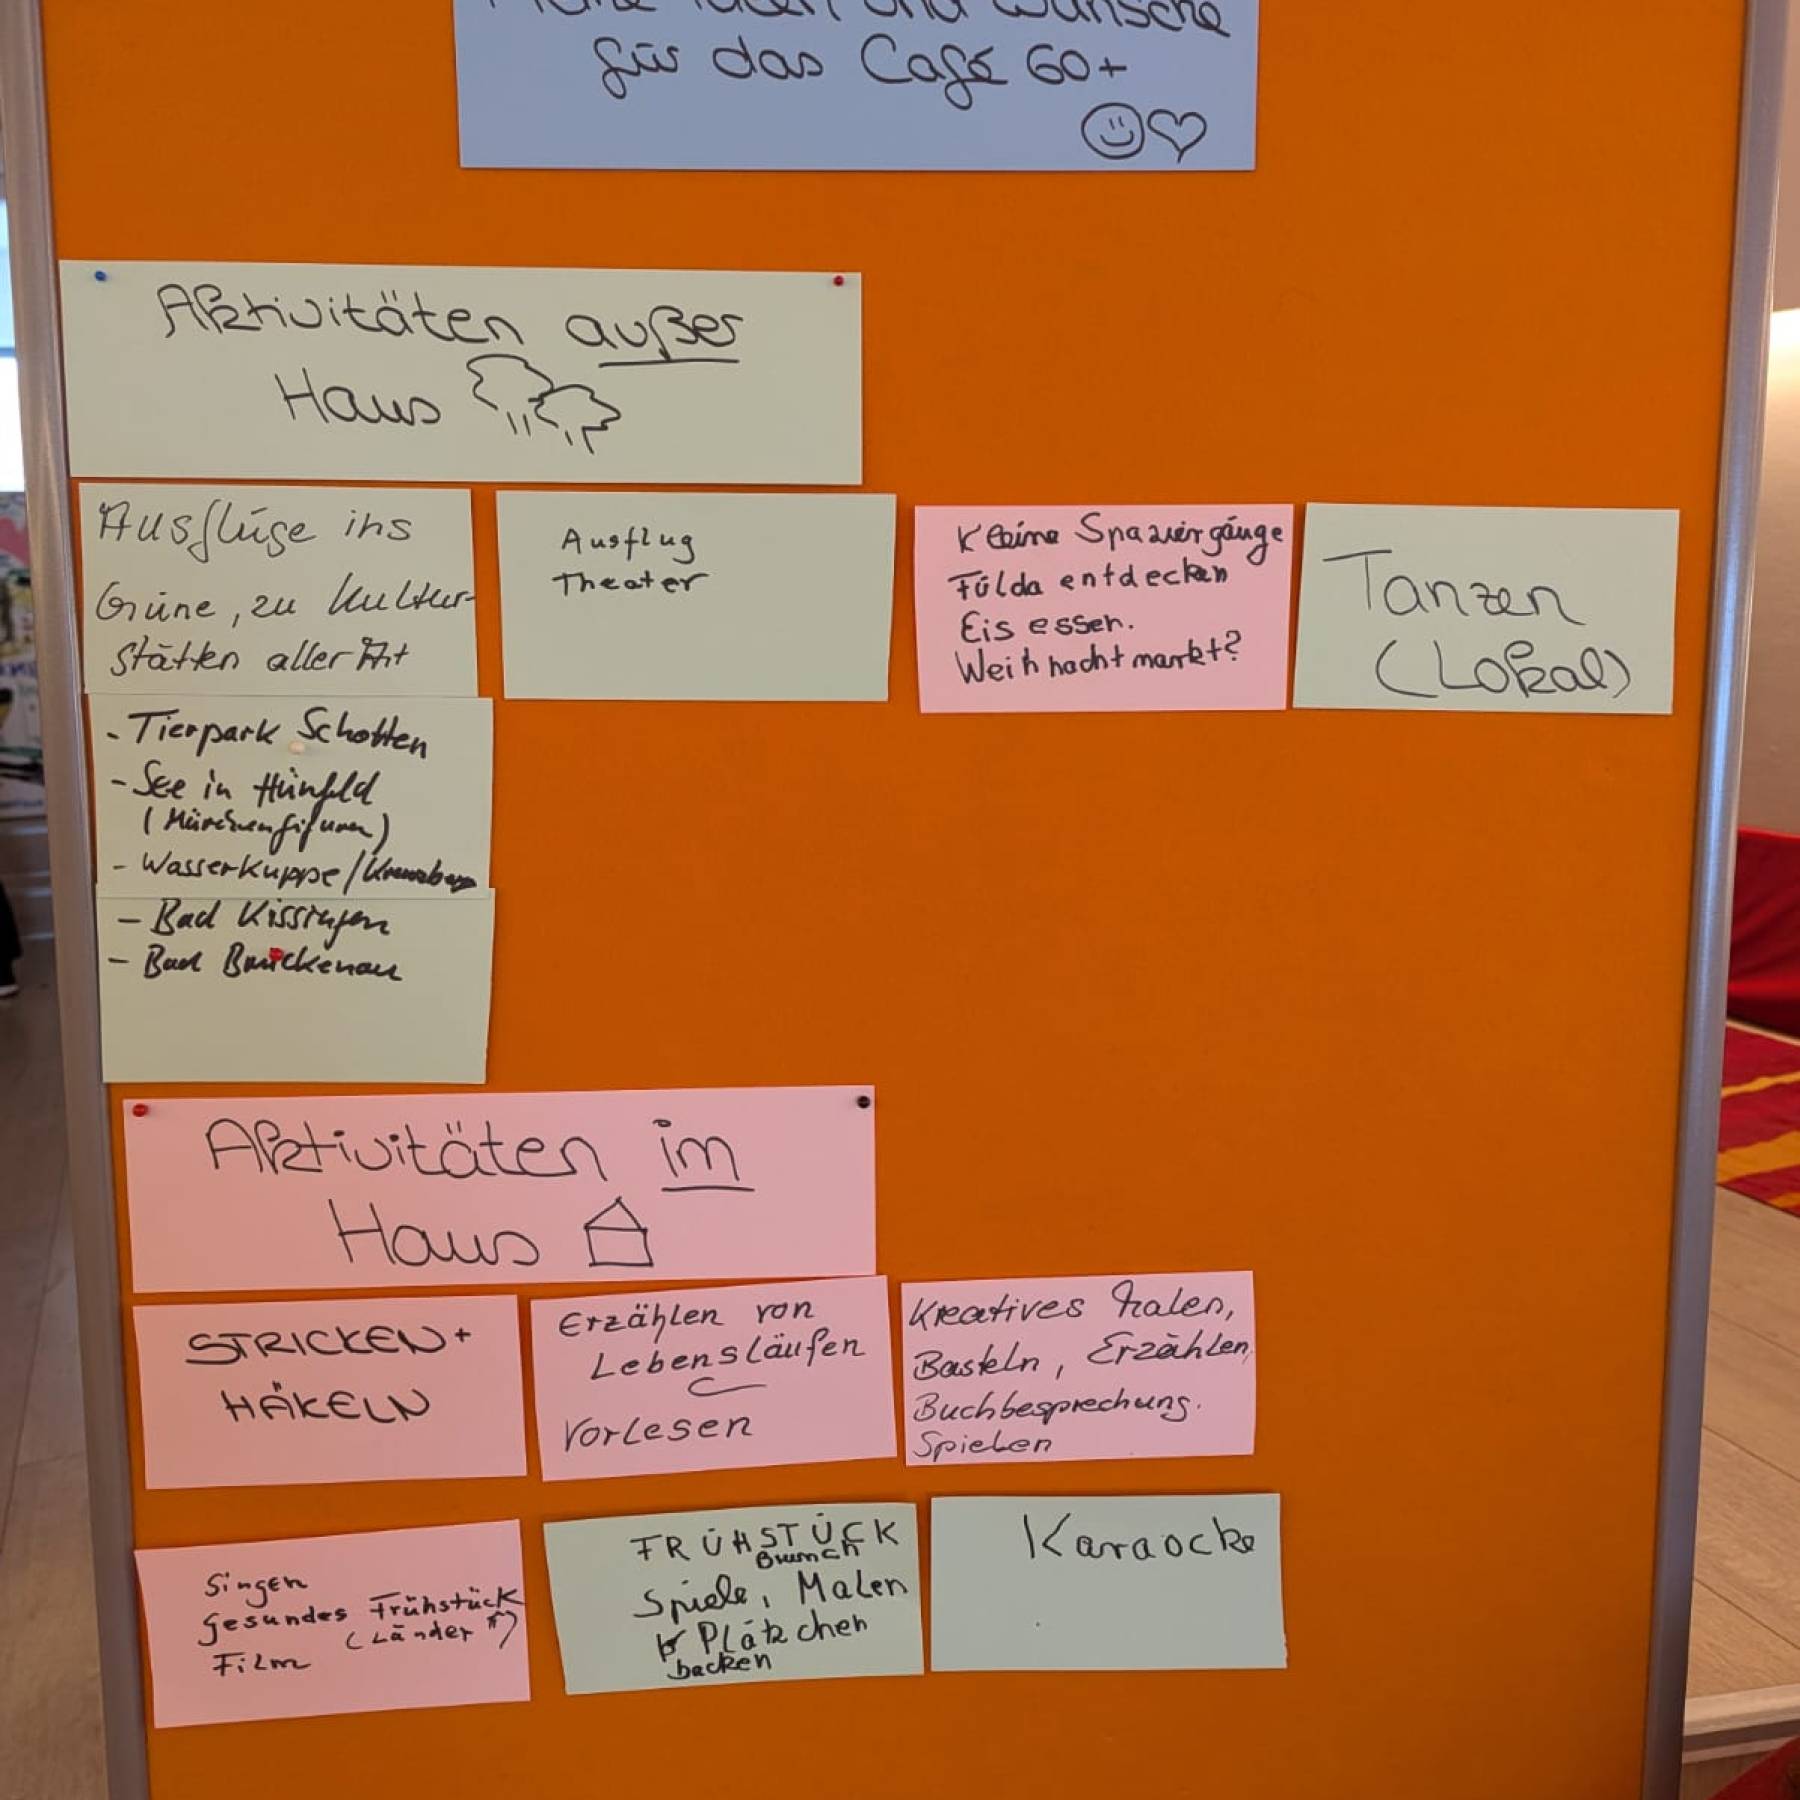 Meine Ideen und Wünsche
für das Café 60+
Aktivitäten außer
Haus
Ausflüge ins
Grüne, zu Kultur-
stätten aller Art
- Tierpark Schotten
- See in Hünfeld
(Märchenfiguren)
- Wasserkuppe/Kreuzberg
- Bad Kissingen
- Bad Brückenau
Ausflug
Theater
Kleine Spaziergänge
Fulda entdecken
Eis essen.
Weihnachtmarkt?
Tanzen
(Lokal)
Aktivitäten im
Haus
STRICKEN +
HÄKELN
Erzählen von
Lebensläufen
Vorlesen
Kreatives Malen,
Basteln, Erzählen,
Buchbesprechung.
Spielen
Singen
gesundes Frühstück
(Länder)
Film
FRÜHSTÜCK
Brunch
Spiele, Malen
Plätzchen
backen
Karaocke